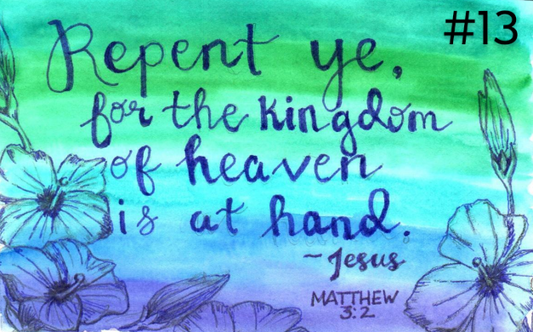 #13
Repent ye,
for the kingdom
of heaven
is at hand.
~Jesus
MATTHEW
3:2